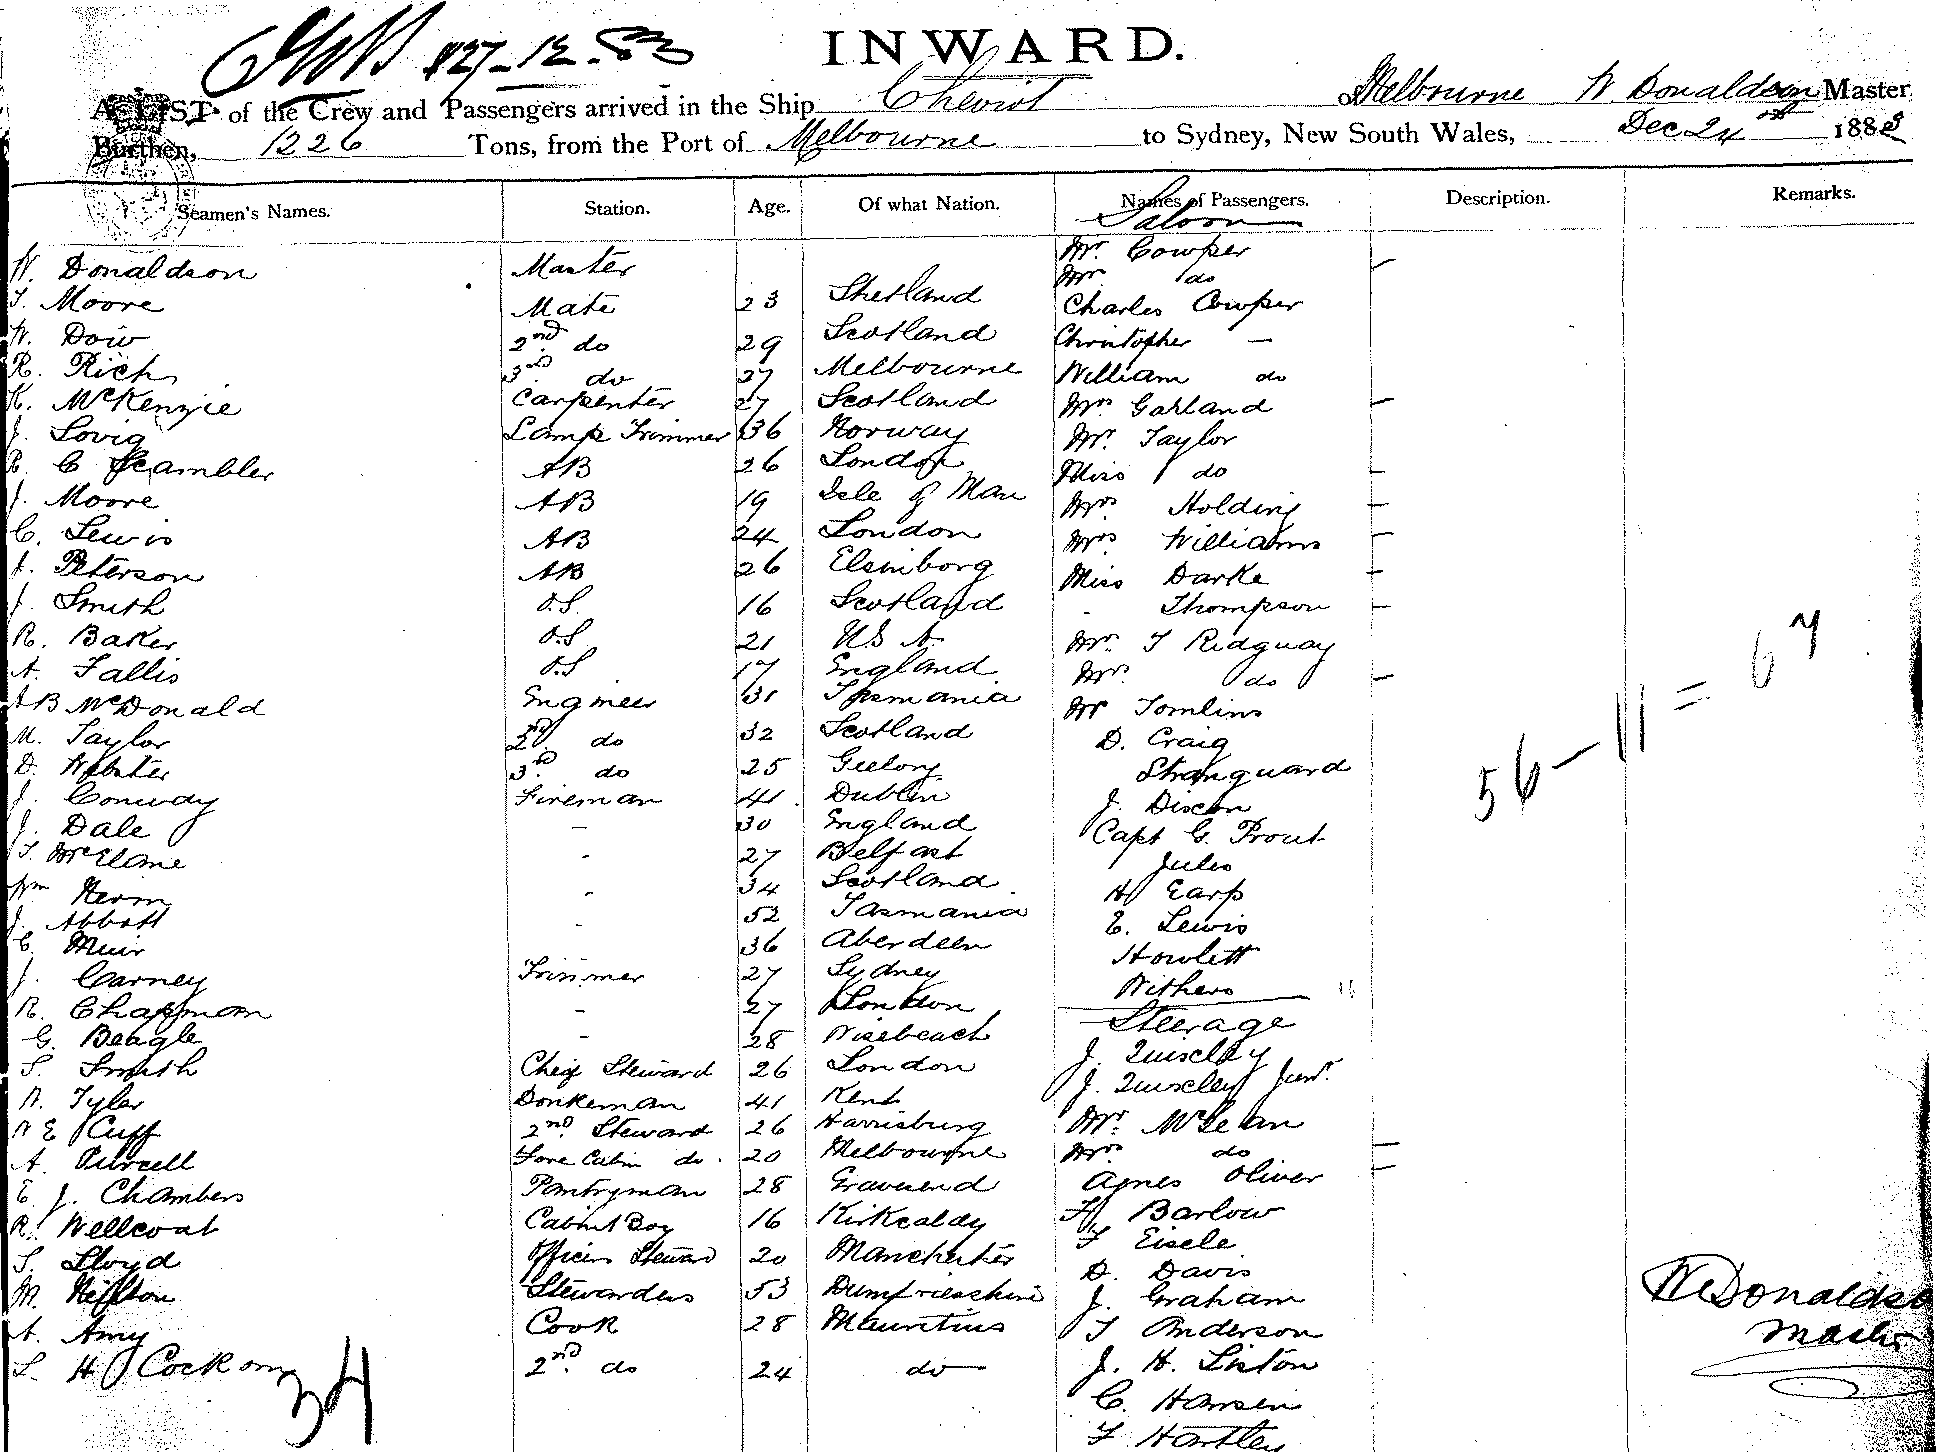 27-12-83
INWARD.
A LIST of the Crew and Passengers arrived in the Ship Cheviot of Melbourne W. Donaldson Master
Burthen, 1226 Tons, from the Port of Melbourne to Sydney, New South Wales, Dec 24th 1883
Seamen's Names. Station. Age. Of what Nation. Names of Passengers. Description. Remarks.
Saloon
W. Donaldson Master Mr. Cowper
Mrs do
T. Moore Mate 23 Shetland Charles Cowper
W. Dow 2nd do 29 Scotland Christopher —
R. Rich 3rd do 27 Melbourne William do
K. McKenzie Carpenter 27 Scotland Mrs Garland
J. Lovig Lamp Trimmer 36 Norway Mr. Taylor
R. C Scambler AB 26 London Miss do
J. Moore AB 19 Isle of Man Mrs Holding
C. Lewis AB 24 London Mrs Williams
J. Peterson AB 26 Elsinborg Miss Darke
J. Smith O.S. 16 Scotland - Thompson
R. Baker O.S 21 U.S A. Mr. T Ridguay
A. Fallis O.S 17 England Mrs do
A B McDonald Engineer 31 Tasmania Mr Tomlins
M. Taylor 2nd do 32 Scotland D. Craig
D. Webster 3rd do 25 Geelong Stranguard
J. Conway Fireman 41 Dublin J. Dixon
J. Dale — 30 England Capt G. Prout
T. McElane - 27 Belfast Jules
Wm Kerr - 34 Scotland H Earp
J. Abbott - 52 Tasmania E. Lewis
C. Muir 36 Aberdeen Howlett
J. Carney Trimmer 27 Sydney Withers
R. Chapman - 27 London Steerage
G. Beagle - 28 Wisebeach J. Quixley
S. Smith Chief Steward 26 London J. Quixley Junr.
W. Tyler Donkeman 41 Kent Mr. McLean
W E Cuff 2nd Steward 26 Harrisburg Mrs do
A. Purcell Fore Cabin do. 20 Melbourne Agnes Oliver
E J. Chambers Pantryman 28 Gravesend H Barlow
R. Wellcoat Cabin Boy 16 Kirkcaldy F Eisele
S. Lloyd Officers Steward 20 Manchester D. Davis
M. Stewardess 53 Dumfriesshire J. Graham
A. Amy Cook 28 Mauritius T Anderson
L. H Cockom 2nd do 24 do J. H. Liston
C. Hansen
F Hartley
34
56 – 11 = 67
W Donaldson
Master